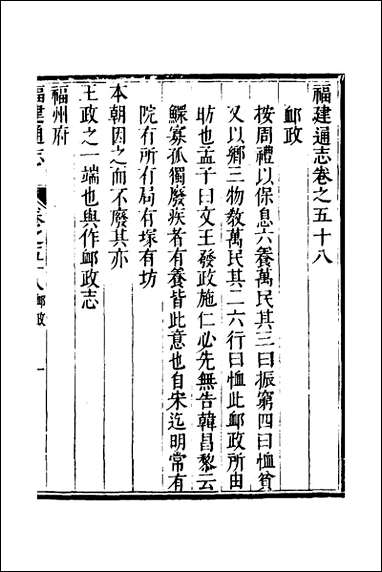 福建通志卷之五十八
䘏政
按周禮以保息六養萬民其三曰振窮四曰恤貧
又以鄉三物敎萬民其二六行曰恤此䘏政所由
昉也孟子曰文王發政施仁必先無告韓昌黎云
鰥寡孤獨廢疾者有養皆此意也自宋迄明常有
院有所有局有塚有坊
本朝因之而不廢其亦
王政之一端也與作䘏政志
福州府
福建通志 卷之五十八 䘏政 一